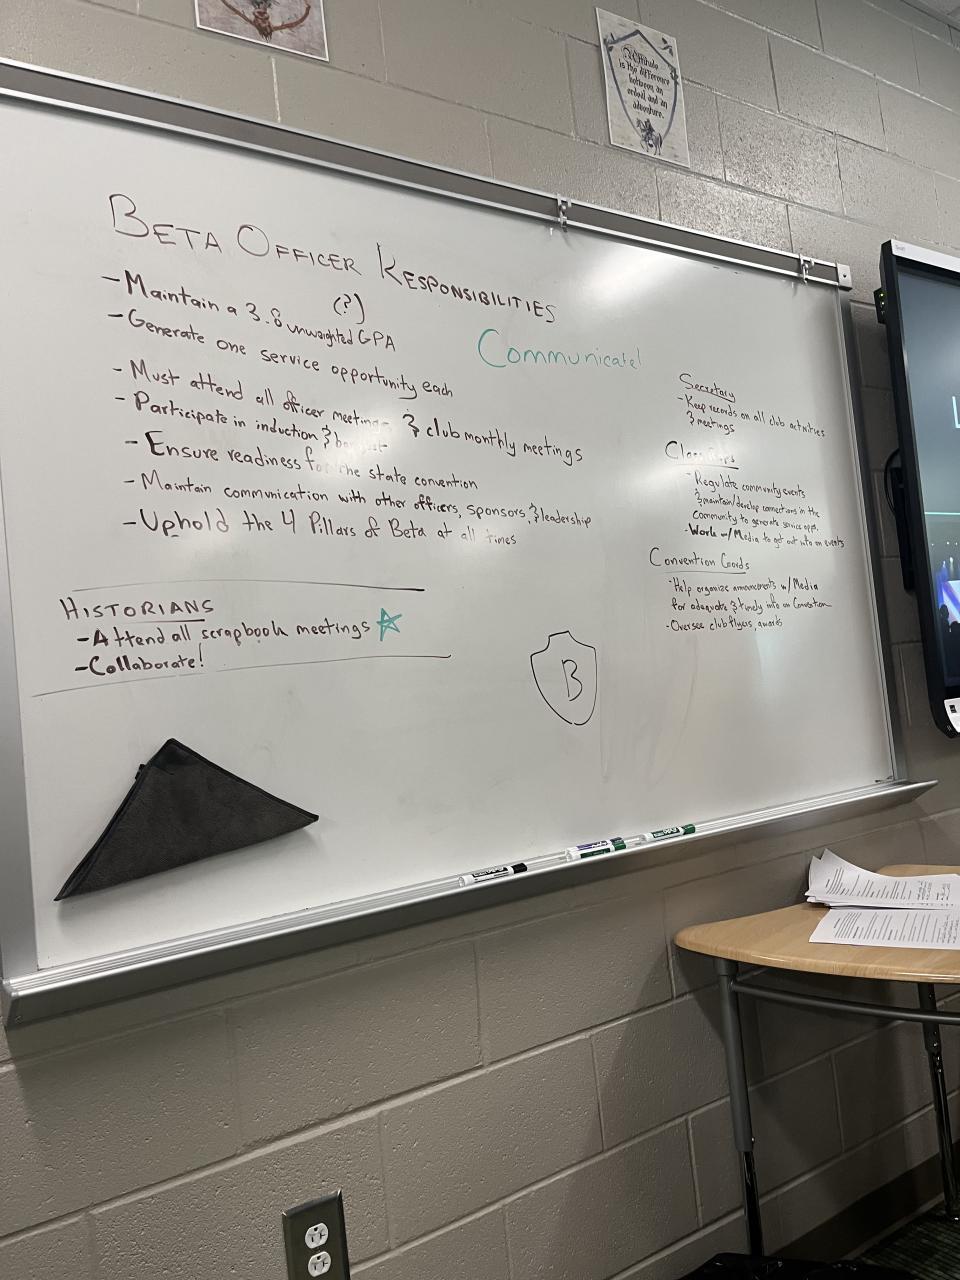 Attitude
is the difference
between an
ordeal and an
adventure.
BETA OFFICER RESPONSIBILITIES
-Maintain a 3.8 unweighted GPA
(?)
-Generate one service opportunity each
-Must attend all officer meetings & club monthly meetings
-Participate in induction &
-Ensure readiness for the state convention
-Maintain communication with other officers, sponsors, & leadership
-Uphold the 4 Pillars of Beta at all times
Communicate!
HISTORIANS
-Attend all scrapbook meetings
-Collaborate!
Secretary
-Keep records on all club activities
& meetings
Class Reps
-Regulate community events
& maintain/develop connections in the
community to generate service opps.
-Work w/Media to get out info on events
Convention Coords
-Help organize announcements w/ Media
for adequate & timely info on Convention
-Oversee club flyers, awards
B
EXPO
EXPO
L